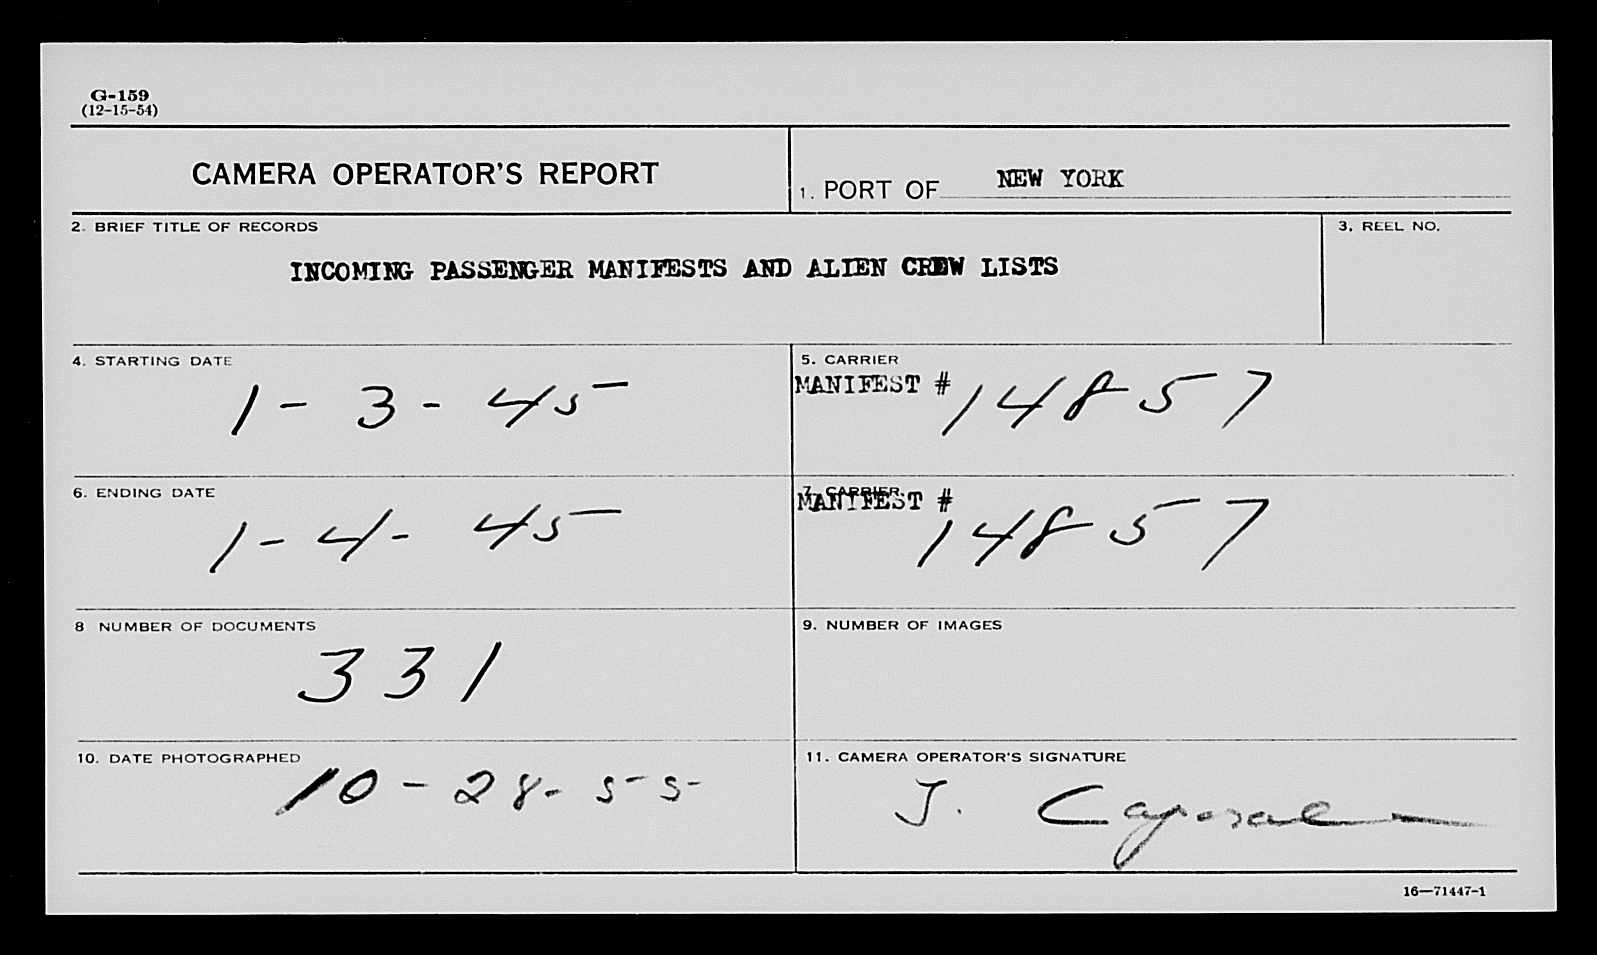 G-159
(12-15-54)
CAMERA OPERATOR'S REPORT
1. PORT OF NEW YORK
2. BRIEF TITLE OF RECORDS
INCOMING PASSENGER MANIFESTS AND ALIEN CREW LISTS
3. REEL NO.
4. STARTING DATE
1-3-45
5. CARRIER
MANIFEST # 14857
6. ENDING DATE
1-4-45
7. CARRIER
MANIFEST # 14857
8 NUMBER OF DOCUMENTS
331
9. NUMBER OF IMAGES
10. DATE PHOTOGRAPHED
10-28-55
11. CAMERA OPERATOR'S SIGNATURE
J. Caporale
16—71447-1